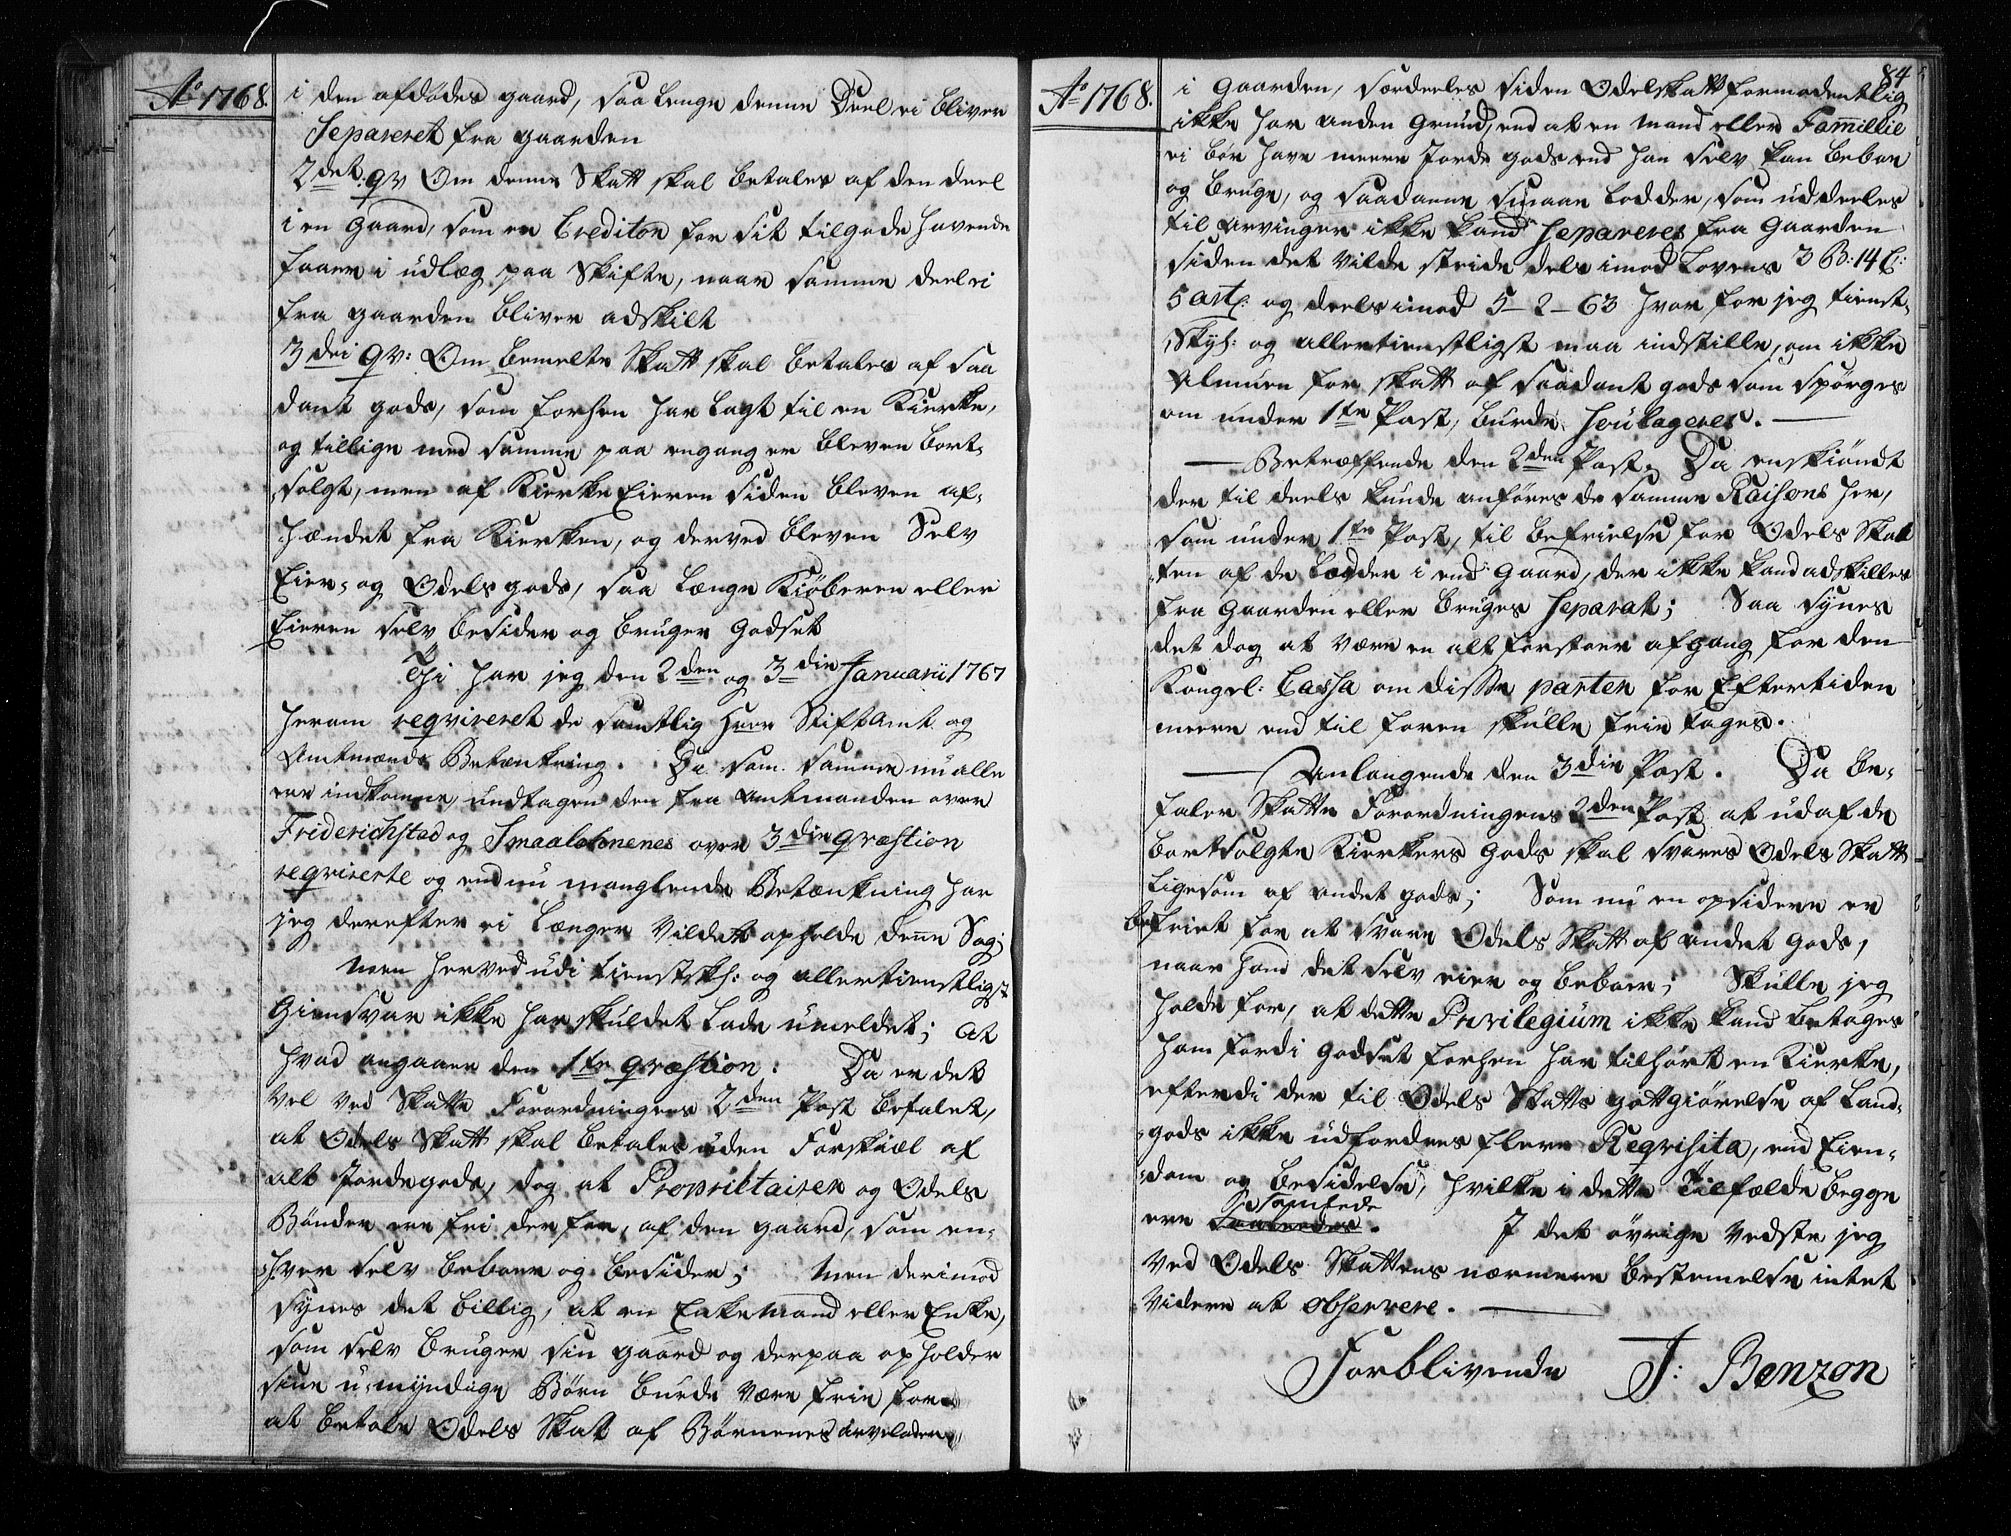 Ao 1768.
i den afdødes gaard, saa lenge denne Deel ei bliver
Separeret fra gaarden
2det: qv Om denne Skatt skal betales af den deel
i en Gaard, som en Creditor for sit tilgode havende
faaer i udlæg paa Skifte, naar samme deel ei
fra gaarden bliver adskilt
3die qv: Om bemelte Skatt skal betales af saa
dant gods, som forhen har lagt til en Kierke,
og tillige med samme paa engang er bleven bort-
solgt, men af Kierke Eieren siden bleven af-
hændet fra Kierken, og derved bleven Selv
Eier- og Odels gods, saa længe Kiøberen eller
Eieren selv besider og bruger Godset
Thi har jeg den 2den og 3die Januarii 1767
herom reqvireret de samtlig Herr Stiftamt og
Amtmænds Betænkning. Da som samme nu alle
ere indkomne, undtagen den fra Amtmanden over
Friderichstad og Smaalehnenes over 3die qvæstion
reqvirerte og end nu manglende Betænkning har
jeg derefter ei længer vildet opholde denne Sag;
men herved udi tienstskyl: og allertienstligst
Giensvar ikke har skuldet lade umeldet; at
hvad angaaer den 1te qvæstion: Da er det
vel ved Skatte Forordningens 2den Post befalet,
at Odels Skatt skal betales uden Forskiæl af
alt Jordegods, dog at Proprietairer og Odels
Bønder ere fri derfor, af den gaard, som en-
hver selv beboer og besider; men derimod
synes det billig, at en Enkemand eller Enke,
som selv bruger sin gaard og derpaa opholder
sine u-myndige Børn burde være frie for
at betale Odels Skat af Børnenes arvelodder
84
Ao 1768.
i Gaarden, særdeeles siden Odelskatt formodentlig
ikke har anden Grund, end at en Mand eller Famillie
ei bør have meere Jorde gods end han selv kan beboe
og bruge, og saadanne smaae Lodder, som uddeeles
til Arvinger ikke kand separeres fra Gaarden
siden det vilde stride dels imod Lovens 3 B: 14 C:
5 art: og deels imod 5-2-63 hvor for jeg tienst-
skyl: og allertienstligst maa indstille, om ikke
Almuen for skatt af saadant gods som spørges
om under 1te Post, burde soulageres.
Betræffende den 2den Post. Da enskiøndt
der til deels kunde anføres de samme Raisons her,
som under 1te Post, til befrielse for Odels Skat
ten af de Lodder i end Gaard, der ikke kand adskilles
fra Gaarden eller bruges separat; Saa synes
det dog at være en alt for stoer afgang for den
Kongel: Cassa om disse parter for Eftertiden
meere end til foren skulle frie tages.
Anlangende den 3die Post. Da be-
faler Skatte Forordningens 2den Post at ud af de
bortsolgte Kierkers Gods skal svares Odels Skatt
ligesom af andet gods; Som nu en opsidere er
befriet for at svare Odels Skatt af andet Gods,
naar hand det selv eier og beboer; Skulle jeg
holde for, at dette Privilegium ikke kand betages
ham fordi Godset forhen har tilhørt en Kierke,
efterdi der til Odels Skatts gottgiørelse af Land-
gods ikke udfordres flere Reqvisita, end Eien-
dom og besidelse, hvilke i dette Tilfælde begge
ere samtede. I det øvrige vedste jeg
ved Odels Skattens nærmere bestemelse intet
videre at observere.
Forblivende J: Benzon